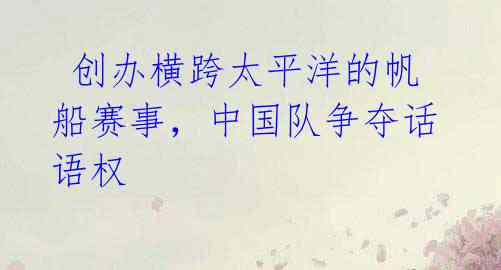 创办横跨太平洋的帆
船赛事，中国队争夺话
语权